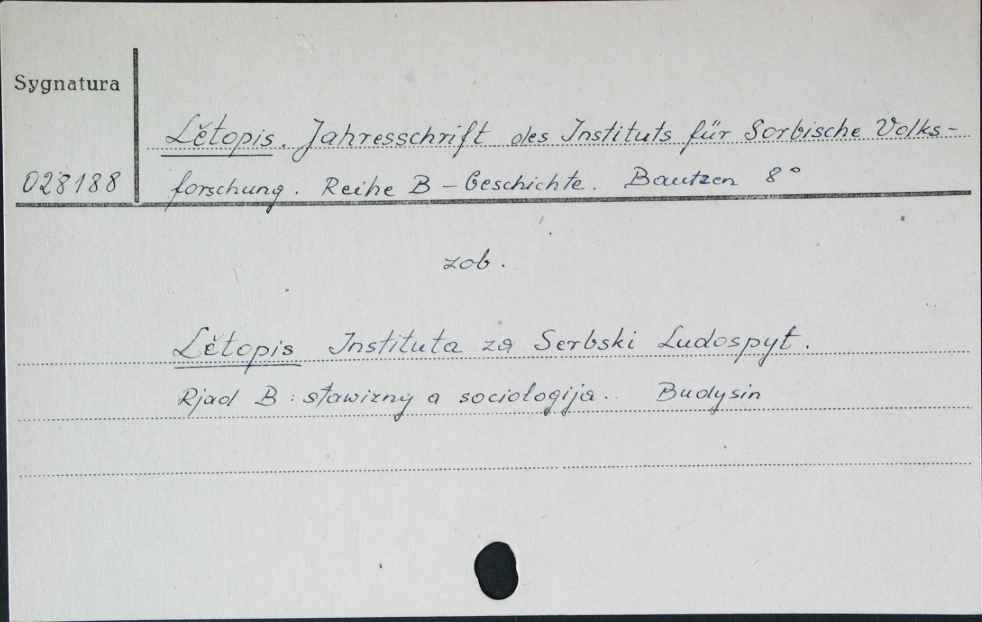 Sygnatura
Lětopis. Jahresschrift des Instituts für Sorbische Volks-
028188
forschung. Reihe B - Geschichte. Bautzen 8°
zob.
Lětopis Instituta za Serbski Ludospyt.
Rjad B : stawizny a sociologija.. Budysin